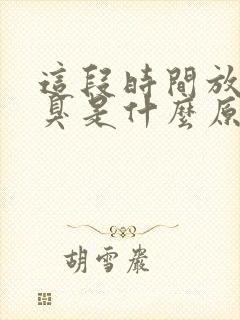 這段時間放
臭是什麼原
胡雪巖